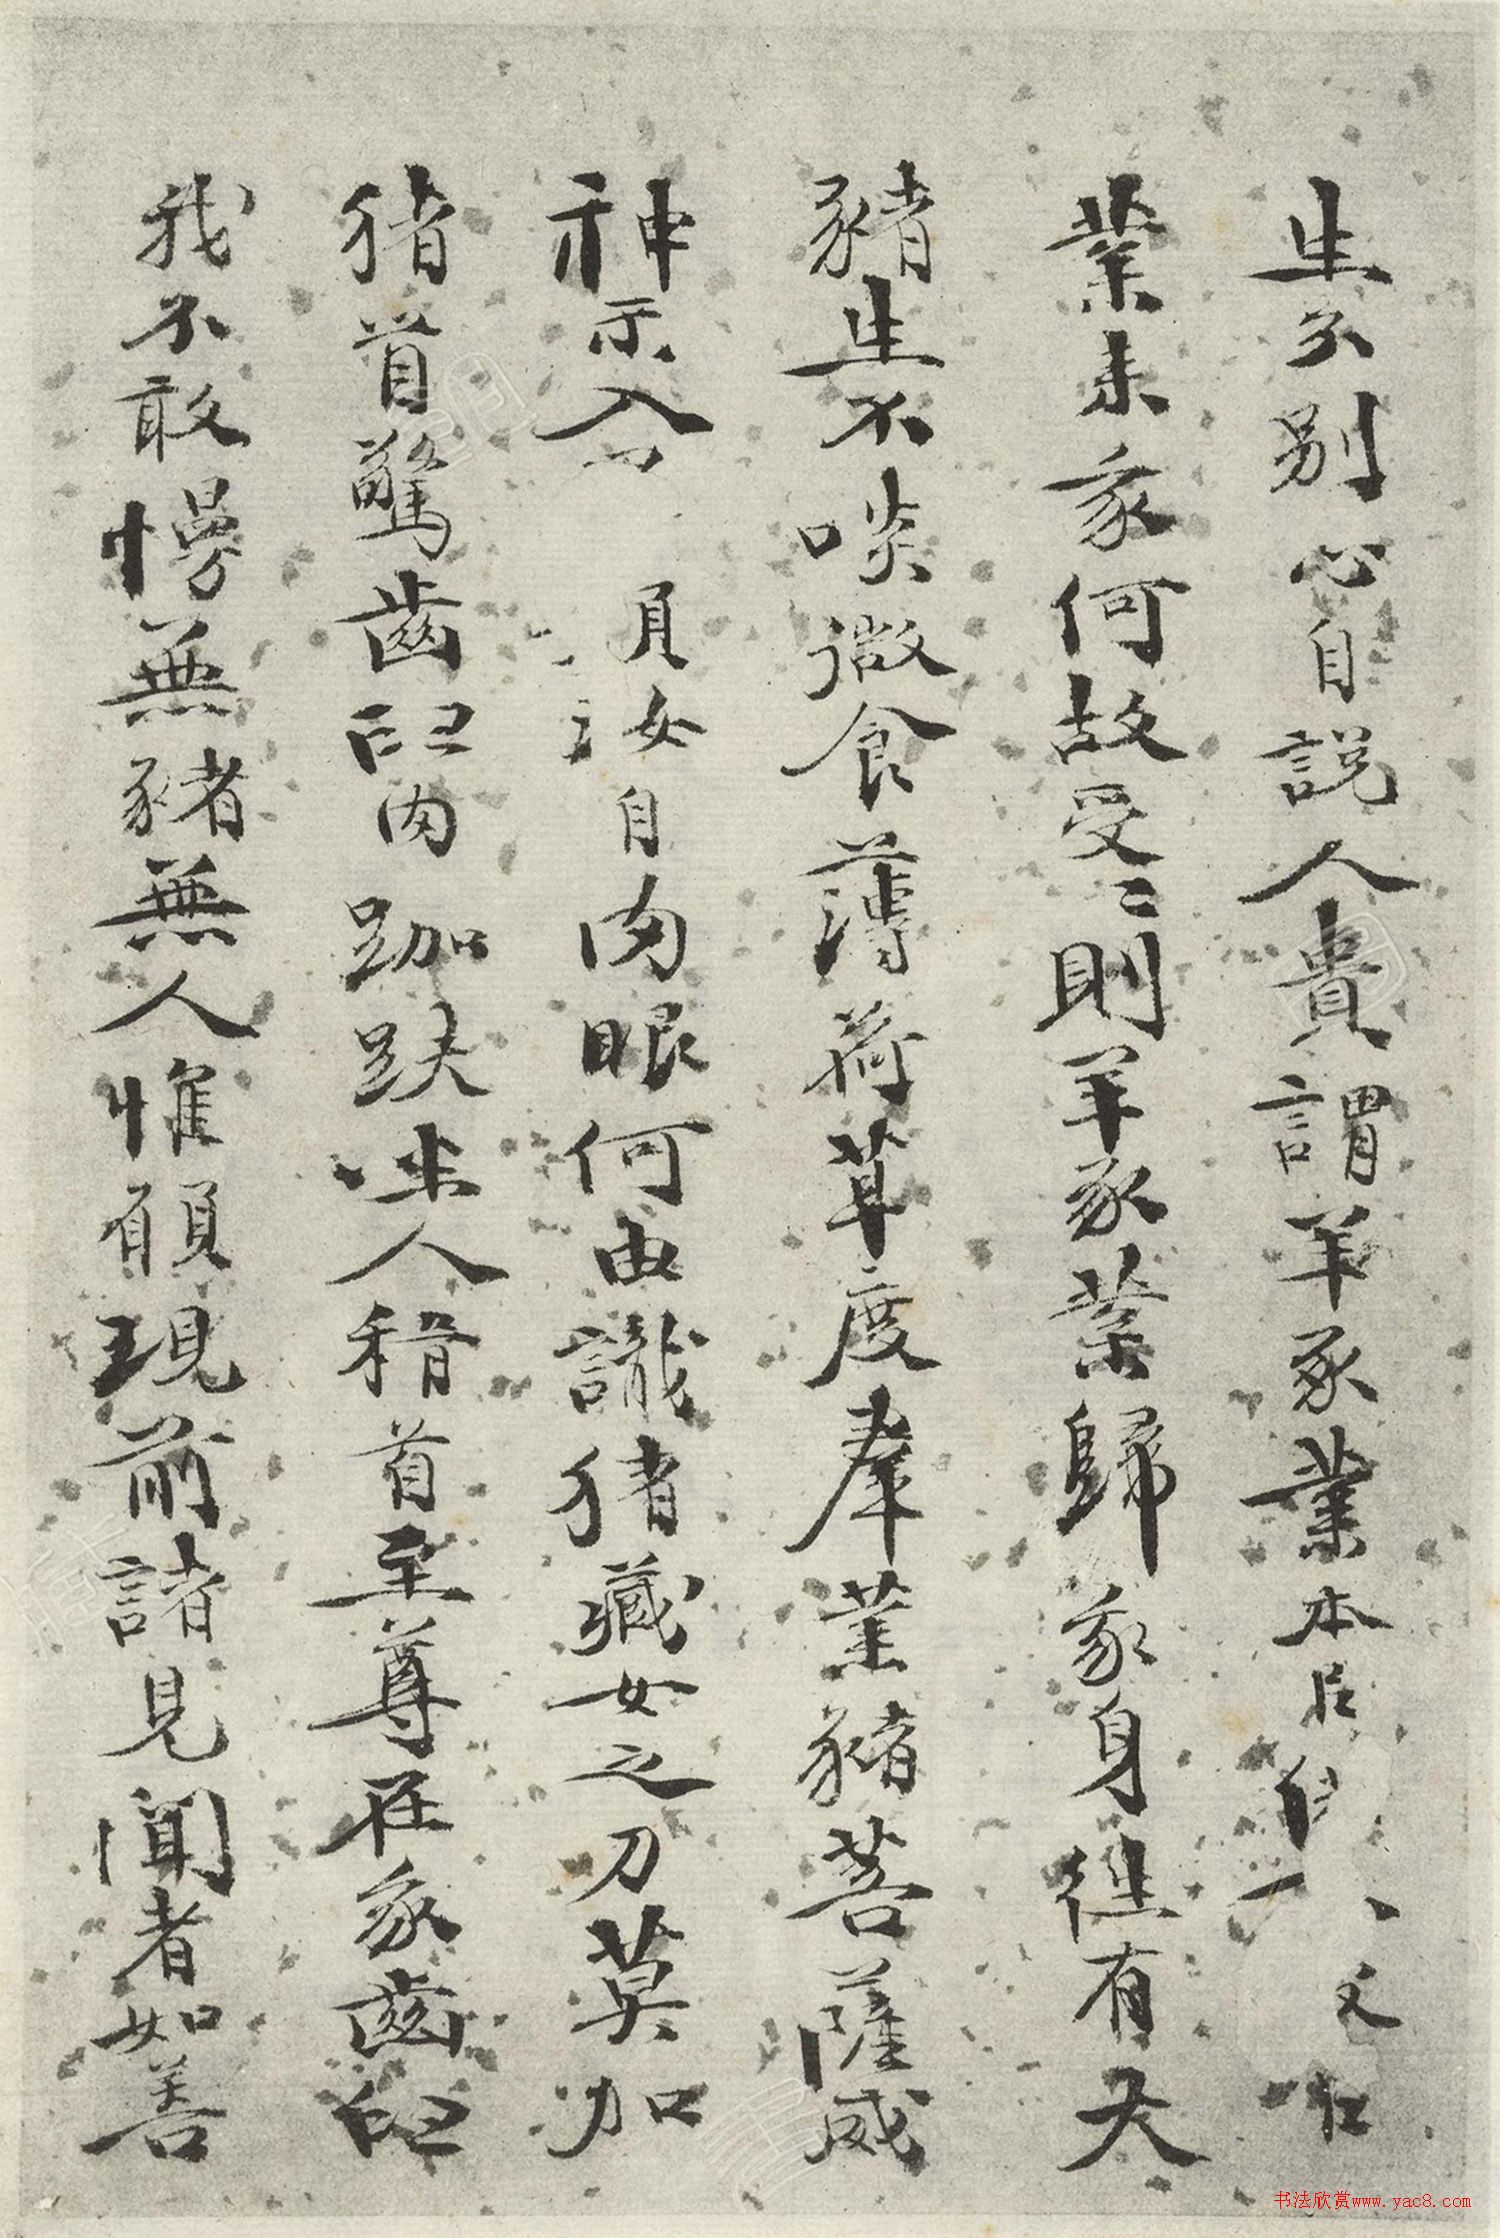 生分別心自說人貴謂羊豕業本居
業未象何故受受則羊豕業歸象身往有大
豬生不啖微食薄荷草度羣業豬菩薩威
神示入 負汝自肉眼何由識猪藏女之刀莫加
猪首驚齒臼肉跏趺坐人稽首至尊在象齒臼
我不敢慢無豬無人惟願現前諸見聞者如善
书法欣赏www.yac8.com